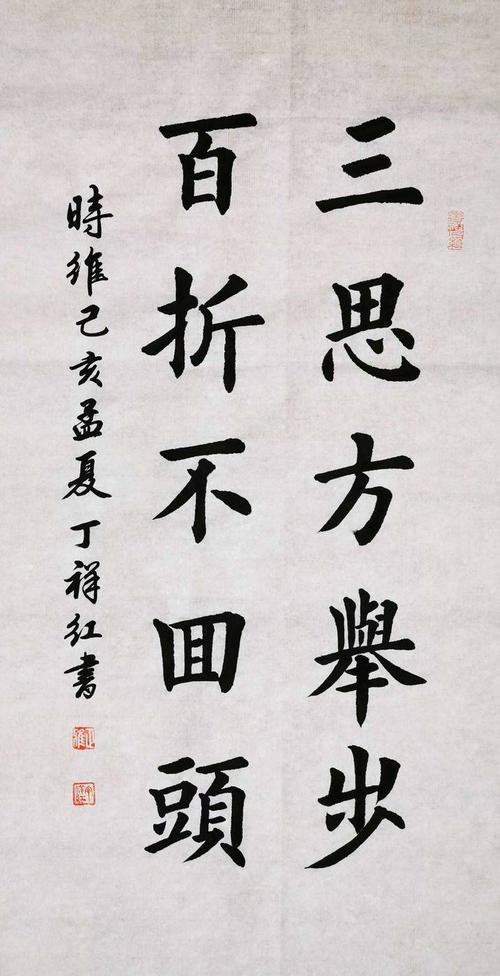 三思方舉步
百折不囬頭
時維己亥孟夏丁祥红書